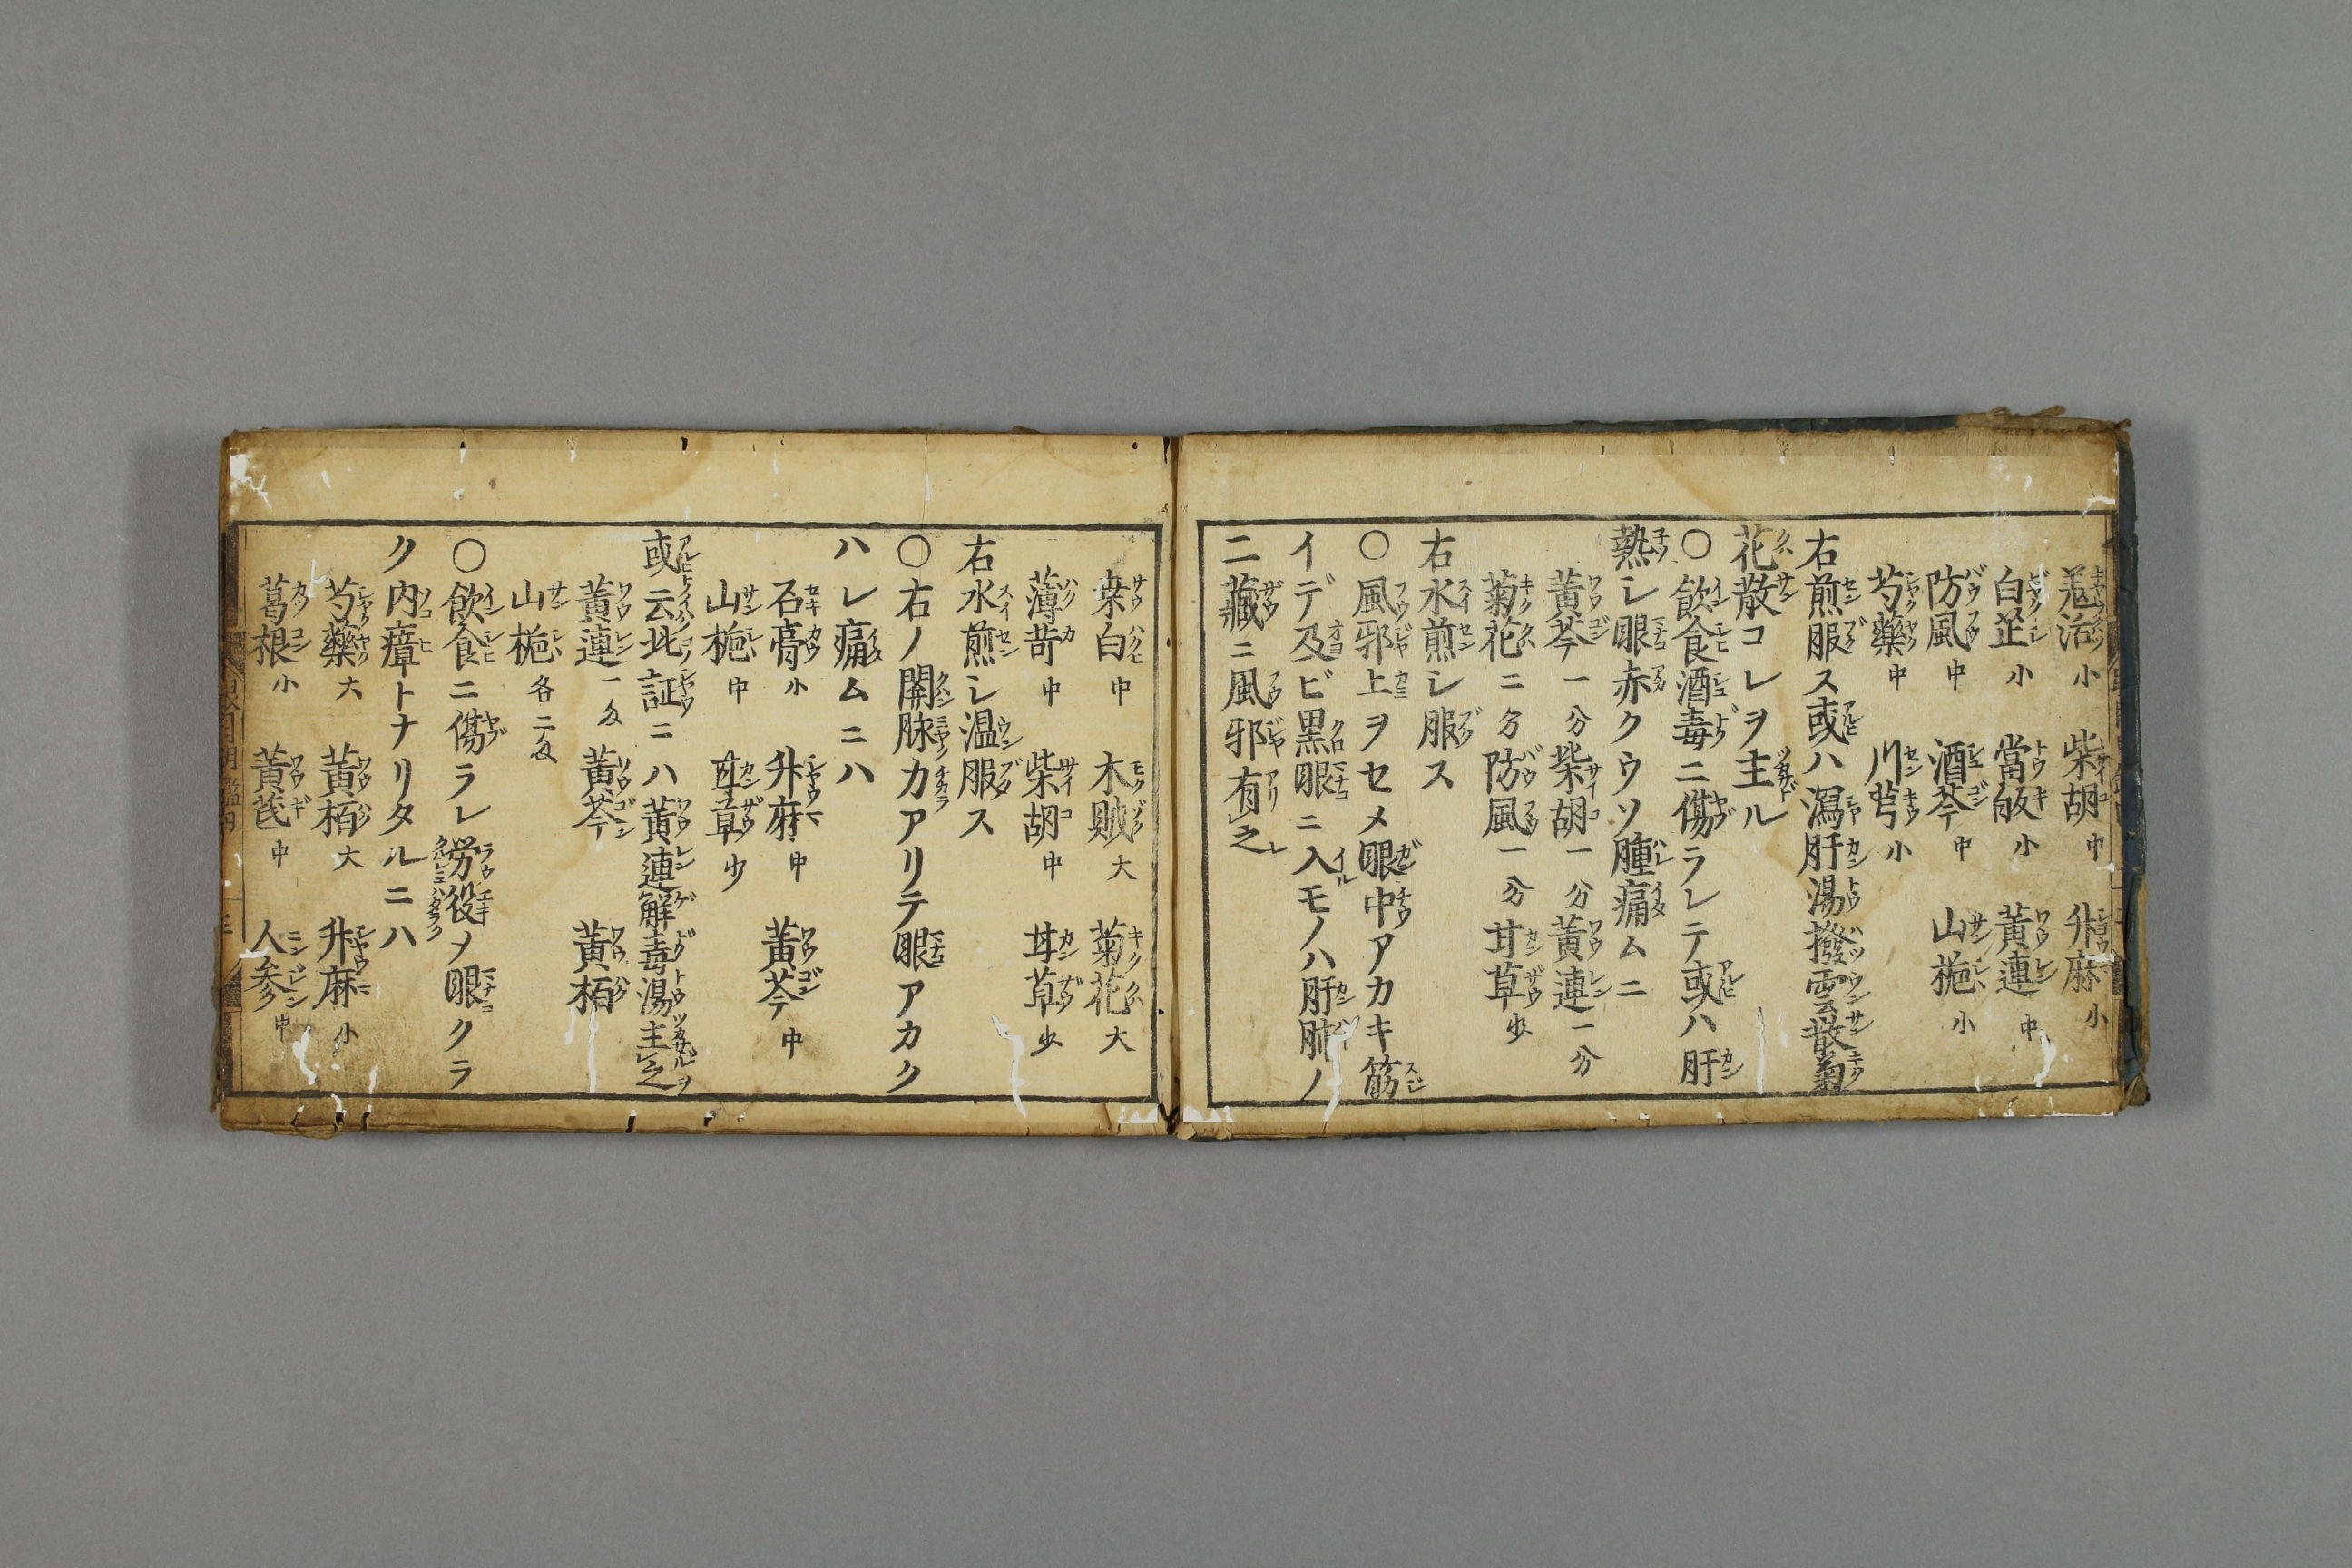 羗活 小 柴胡 中 升麻 小
白芷 小 當皈 小 黃連 中
防風 中 酒芩 中 山梔 小
芍藥 中 川芎 小
右煎服ス或ハ瀉肝湯撥雲散菊
花散コレヲ主ル
〇飲食酒毒ニ傷ラレテ或ハ肝
熱シ眼赤クウソ腫痛ムニ
黃芩 一分 柴胡 一分 黃連 一分
菊花 二分 防風 一分 甘草 少
右水煎シ服ス
〇風邪上ヲセメ眼中アカキ筋
イデ及ビ黒眼ニ入モノハ肝肺ノ
二藏ニ風邪有之
桒白 中 木賊 大 菊花 大
薄苛 中 柴胡 中 甘草 少
右水煎シ温服ス
〇右ノ關脉力アリテ眼アカク
ハレ痛ムニハ
石膏 小 升麻 中 黃芩 中
山梔 中 甘草 少
或云此証ニハ黃連解毒湯主之
黃連 一匁 黃芩 黃栢
山梔 各二匁
〇飲食ニ傷ラレ労役メ眼クラ
ク内瘴トナリタルニハ
芍藥 大 黃栢 大 升麻 小
葛根 小 黃芪 中 人参 中